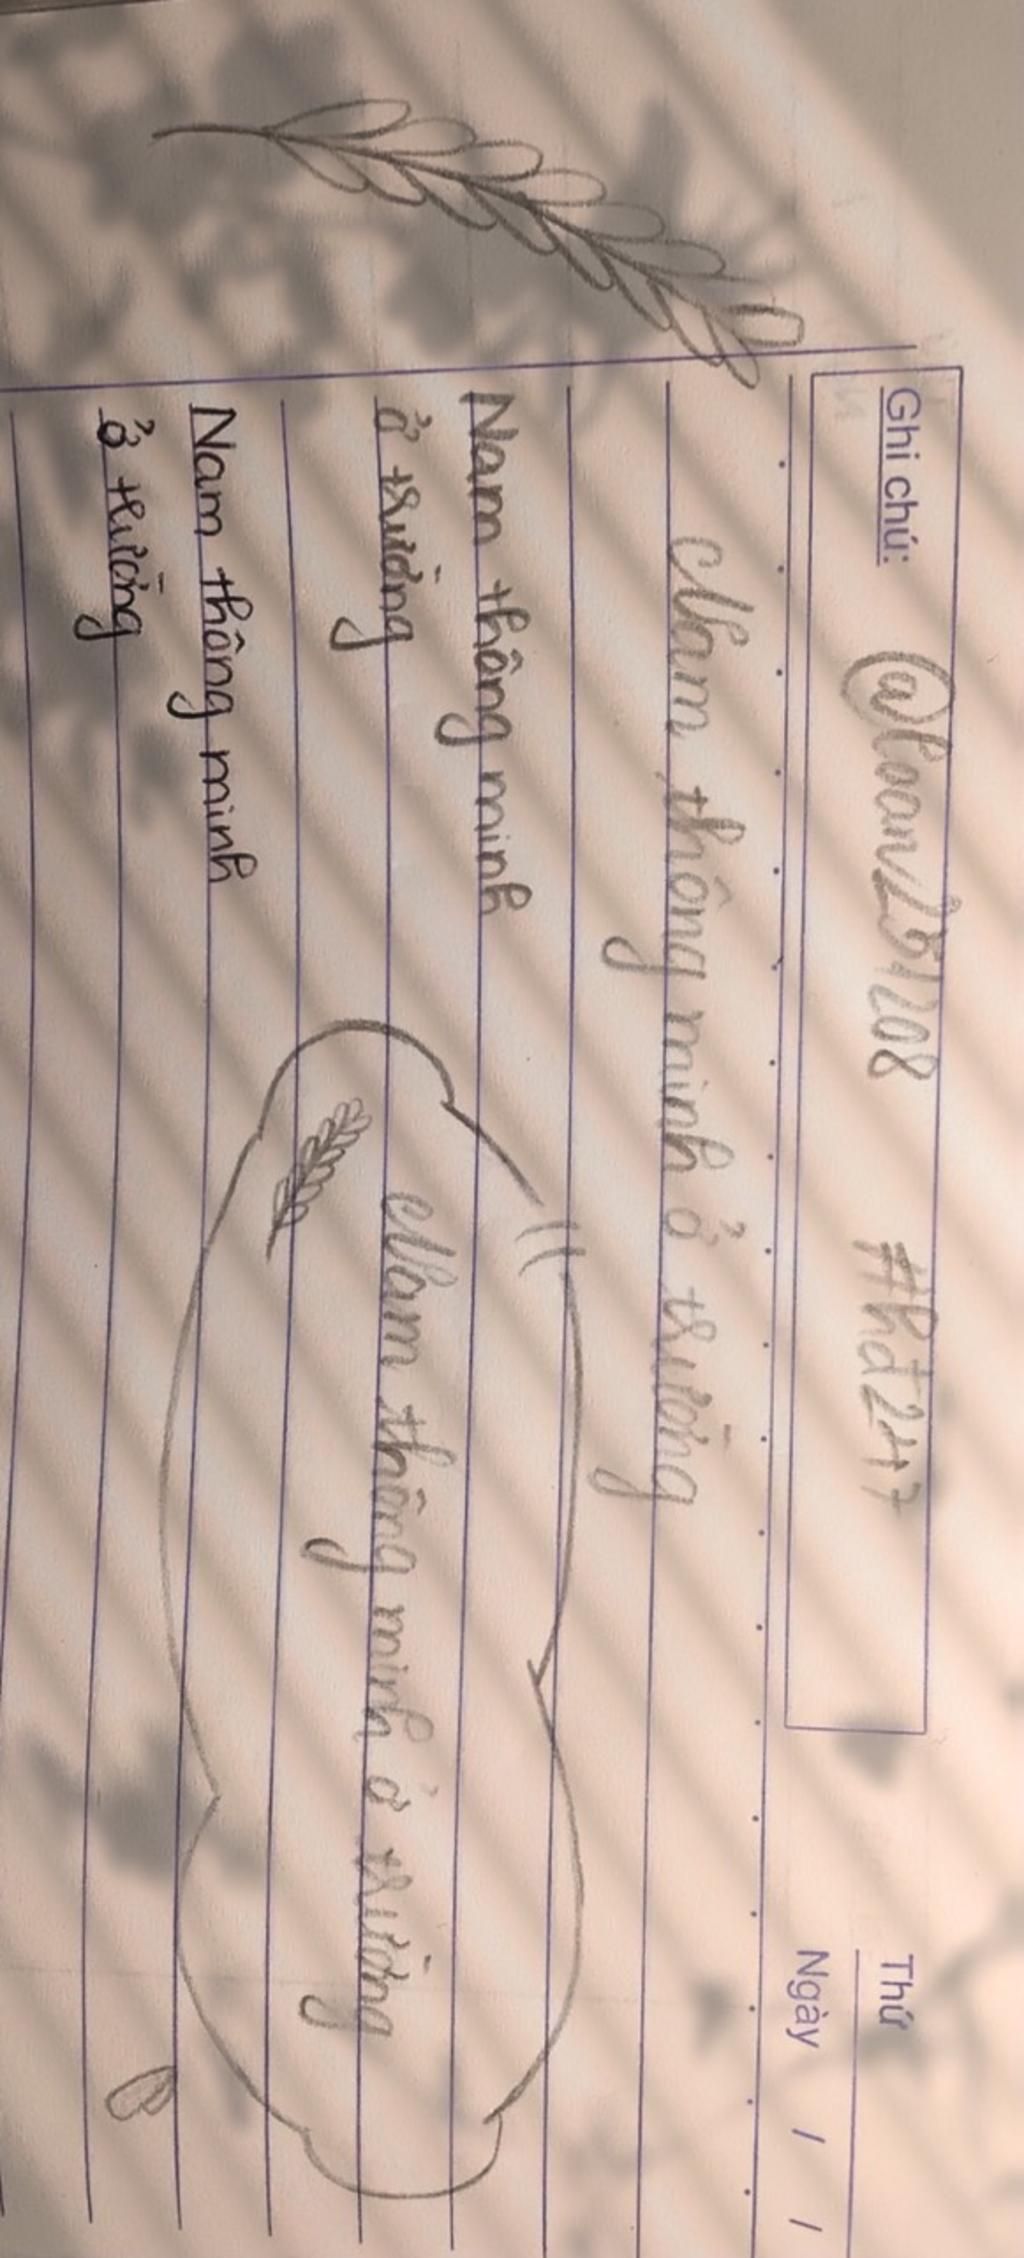 Ghi chú: @loan251208 #hd247
Thứ
Ngày / /
Nam thông minh ở trường
Nam thông minh
ở trường
Nam thông minh ở trường
Nam thông minh
ở trường